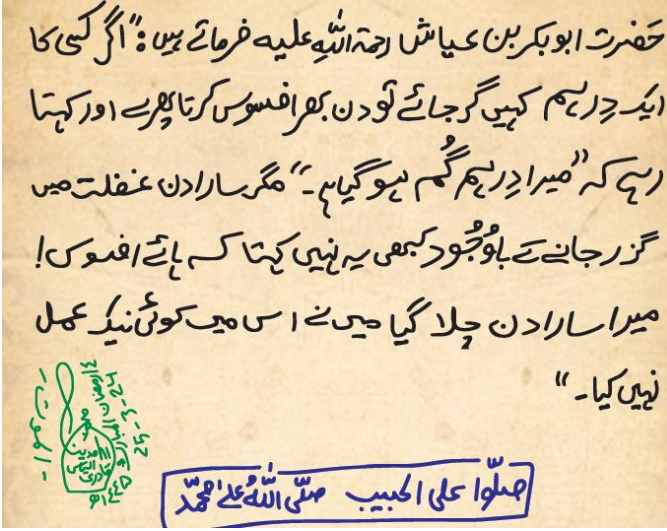 حَضرت ابو بکر بن عیاش رحمۃ اللّٰہِ علیہ فرماتے ہیں: "اگر کسی کا
ایک دِرہم کہیں گر جائے تو دن بھر افسوس کرتا پھرے اور کہتا
رہے کہ "میرا دِرہم گُم ہو گیا ہے۔" مگر سارا دن غفلت میں
گزر جانے کے باوُجُود کبھی یہ نہیں کہتا کہ ہائے افسوس!
میرا سارا دن چلا گیا میں نے اس میں کوئی نیک عمل
نہیں کیا۔"
صلّوا علی الحبیب صلّی اللّٰہُ علٰی محمّد